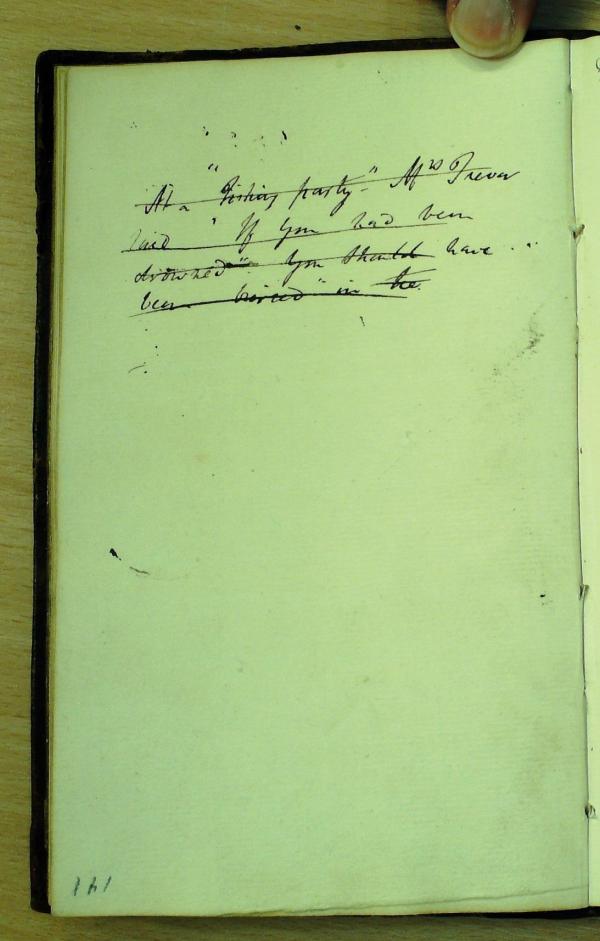 At a "Fishing party" Mrs Trevor
said "If you had been
drowned" you should have
been buried "in the
141